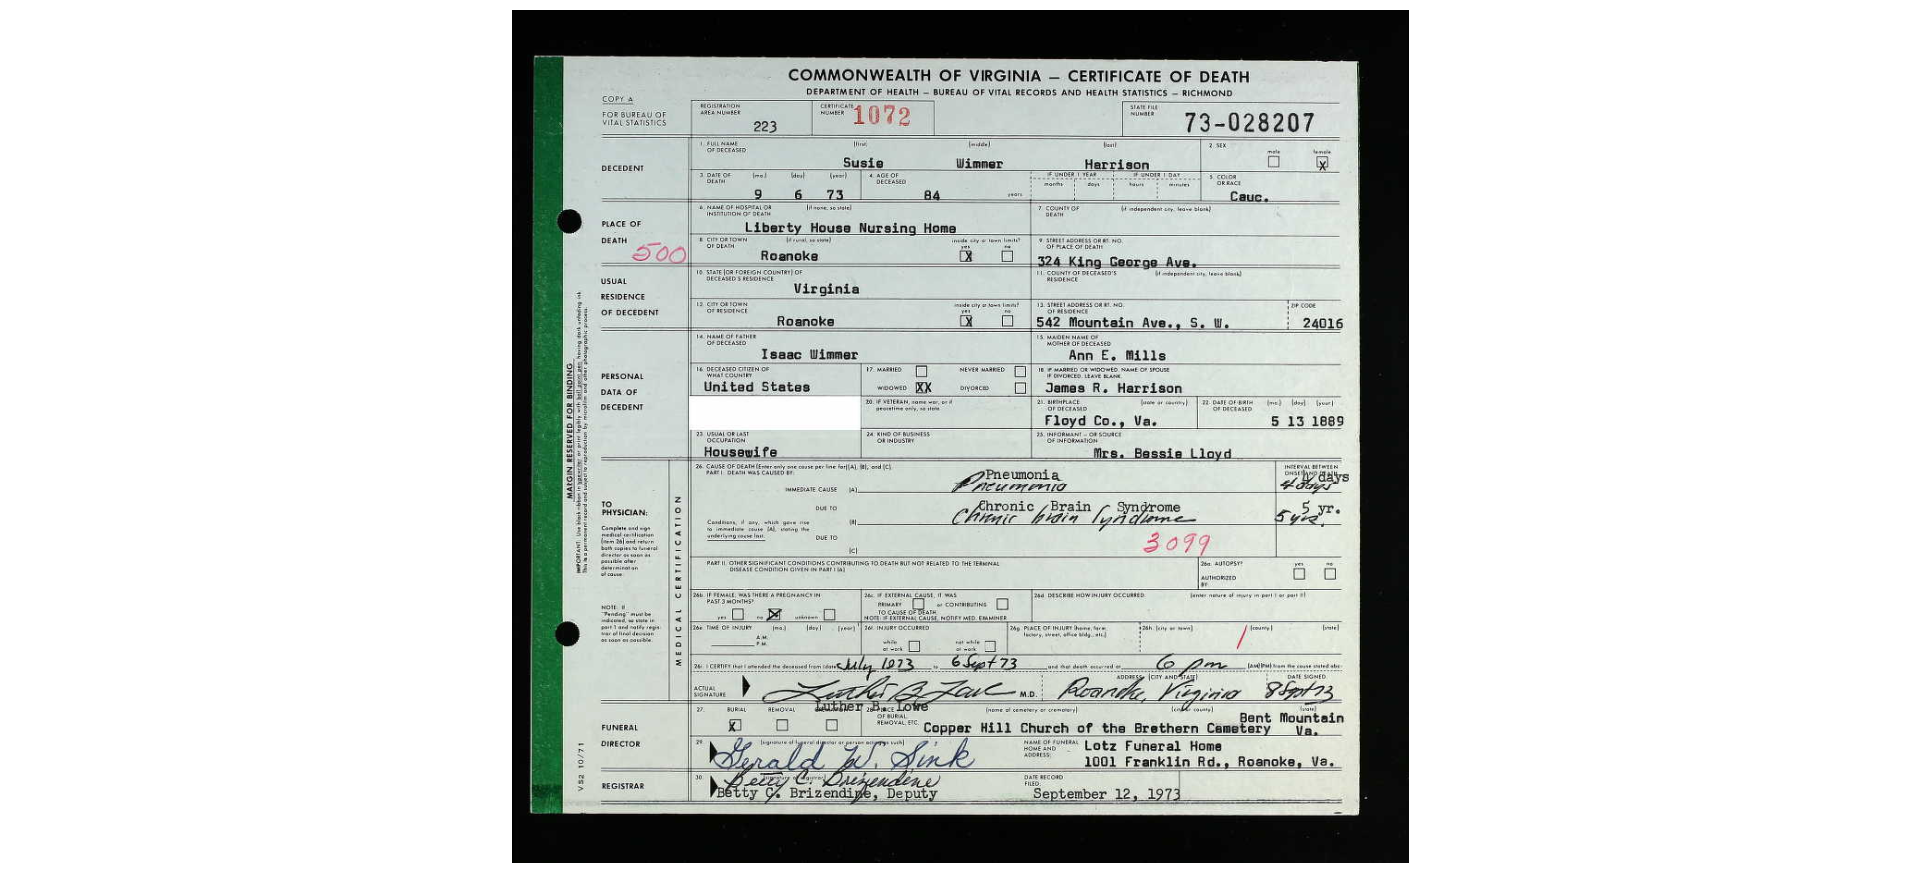 COMMONWEALTH OF VIRGINIA — CERTIFICATE OF DEATH
DEPARTMENT OF HEALTH — BUREAU OF VITAL RECORDS AND HEALTH STATISTICS — RICHMOND
COPY A
FOR BUREAU OF
VITAL STATISTICS
REGISTRATION
AREA NUMBER 223
CERTIFICATE
NUMBER 1072
STATE FILE
NUMBER 73-028207
DECEDENT
1. FULL NAME
OF DECEASED
(first) (middle) (last)
Susie Wimmer Harrison
2. SEX
male female X
3. DATE OF
DEATH
(mo.) (day) (year)
9 6 73
4. AGE OF
DECEASED
84 years
IF UNDER 1 YEAR IF UNDER 1 DAY
months days hours minutes
5. COLOR
OR RACE
Cauc.
PLACE OF
DEATH
500
6. NAME OF HOSPITAL OR
INSTITUTION OF DEATH
(if none, so state)
Liberty House Nursing Home
7. COUNTY OF
DEATH
(if independent city, leave blank)
8. CITY OR TOWN
OF DEATH
(if rural, so state)
Roanoke
inside city or town limits?
yes no
X
9. STREET ADDRESS OR RT. NO.
OF PLACE OF DEATH
324 King George Ave.
USUAL
RESIDENCE
OF DECEDENT
10. STATE (OR FOREIGN COUNTRY) OF
DECEASED'S RESIDENCE
Virginia
11. COUNTY OF DECEASED'S
RESIDENCE
(if independent city, leave blank)
12. CITY OR TOWN
OF RESIDENCE
Roanoke
inside city or town limits?
yes no
X
13. STREET ADDRESS OR RT. NO.
OF RESIDENCE
542 Mountain Ave., S. W.
ZIP CODE
24016
PERSONAL
DATA OF
DECEDENT
14. NAME OF FATHER
OF DECEASED
Isaac Wimmer
15. MAIDEN NAME OF
MOTHER OF DECEASED
Ann E. Mills
16. DECEASED CITIZEN OF
WHAT COUNTRY
United States
17. MARRIED NEVER MARRIED
WIDOWED XX DIVORCED
18. IF MARRIED OR WIDOWED NAME OF SPOUSE
IF DIVORCED, LEAVE BLANK
James R. Harrison
20. IF VETERAN, name war, or if
peacetime only, so state
21. BIRTHPLACE
OF DECEASED
(state or country)
Floyd Co., Va.
22. DATE OF BIRTH
OF DECEASED
(mo.) (day) (year)
5 13 1889
23. USUAL OR LAST
OCCUPATION
Housewife
24. KIND OF BUSINESS
OR INDUSTRY
25. INFORMANT — OR SOURCE
OF INFORMATION
Mrs. Bessie Lloyd
MARGIN RESERVED FOR BINDING
MEDICAL CERTIFICATION
TO
PHYSICIAN:
Complete and sign
medical certification
(item 26) and return
both copies to funeral
director as soon as
possible after
determination
of cause.
NOTE: If
"Pending" must be
indicated, so state in
part I and notify regis-
trar of final decision
as soon as possible.
26. CAUSE OF DEATH (Enter only one cause per line for (A), (B), and (C).
PART I. DEATH WAS CAUSED BY:
INTERVAL BETWEEN
ONSET AND DEATH
IMMEDIATE CAUSE (A)
Pneumonia
Pneumonia
4 days
4 days
DUE TO
Conditions, if any, which gave rise
to immediate cause (A), stating the
underlying cause last.
(B)
Chronic Brain Syndrome
Chronic brain Syndrome
5 yr.
5 yrs.
DUE TO
(C)
3099
PART II. OTHER SIGNIFICANT CONDITIONS CONTRIBUTING TO DEATH BUT NOT RELATED TO THE TERMINAL
DISEASE CONDITION GIVEN IN PART I (A)
26a. AUTOPSY?
yes no
AUTHORIZED
BY:
26b. IF FEMALE, WAS THERE A PREGNANCY IN
PAST 3 MONTHS?
yes no X unknown
26c. IF EXTERNAL CAUSE, IT WAS
PRIMARY or CONTRIBUTING
TO CAUSE OF DEATH
NOTE: IF EXTERNAL CAUSE, NOTIFY MED. EXAMINER
26d. DESCRIBE HOW INJURY OCCURRED
(enter nature of injury in part I or part II)
26e. TIME OF INJURY (mo.) (day) (year)
A.M.
P.M.
26f. INJURY OCCURRED
while at work not while at work
26g. PLACE OF INJURY (home, farm,
factory, street, office bldg., etc.)
26h. (city or town) (county) (state)
26i. I CERTIFY that I attended the deceased from (date) July 1973 to 6 Sept 73 and that death occurred at 6 pm
ACTUAL
SIGNATURE
Luther B Lowe M.D.
ADDRESS (CITY AND STATE)
Roanoke, Virginia
DATE SIGNED
8 Sept 73
Luther B. Lowe
FUNERAL
DIRECTOR
27. BURIAL REMOVAL
X
28. PLACE
OF BURIAL,
REMOVAL, ETC.
(name of cemetery or crematory) (city or county) (state)
Copper Hill Church of the Brethern Cemetery
Bent Mountain
Va.
29. (signature of funeral director or person acting as such)
Gerald W. Sink
NAME OF FUNERAL
HOME AND
ADDRESS:
Lotz Funeral Home
1001 Franklin Rd., Roanoke, Va.
REGISTRAR
30. (signature of registrar)
Betty C. Brizendine
Betty C. Brizendine, Deputy
DATE RECORD
FILED:
September 12, 1973
VS2 10/71